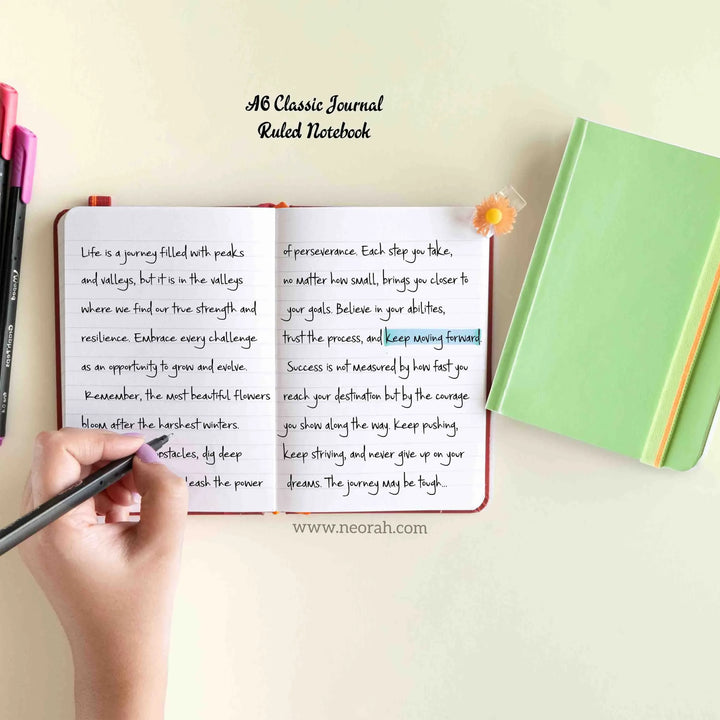 A6 Classic Journal
Ruled Notebook
Life is a journey filled with peaks
and valleys, but it is in the valleys
where we find our true strength and
resilience. Embrace every challenge
as an opportunity to grow and evolve.
Remember, the most beautiful flowers
bloom after the harshest winters.
obstacles, dig deep
leash the power
of perseverance. Each step you take,
no matter how small, brings you closer to
your goals. Believe in your abilities,
trust the process, and keep moving forward.
Success is not measured by how fast you
reach your destination but by the courage
you show along the way. Keep pushing,
keep striving, and never give up on your
dreams. The journey may be tough...
www.neorah.com